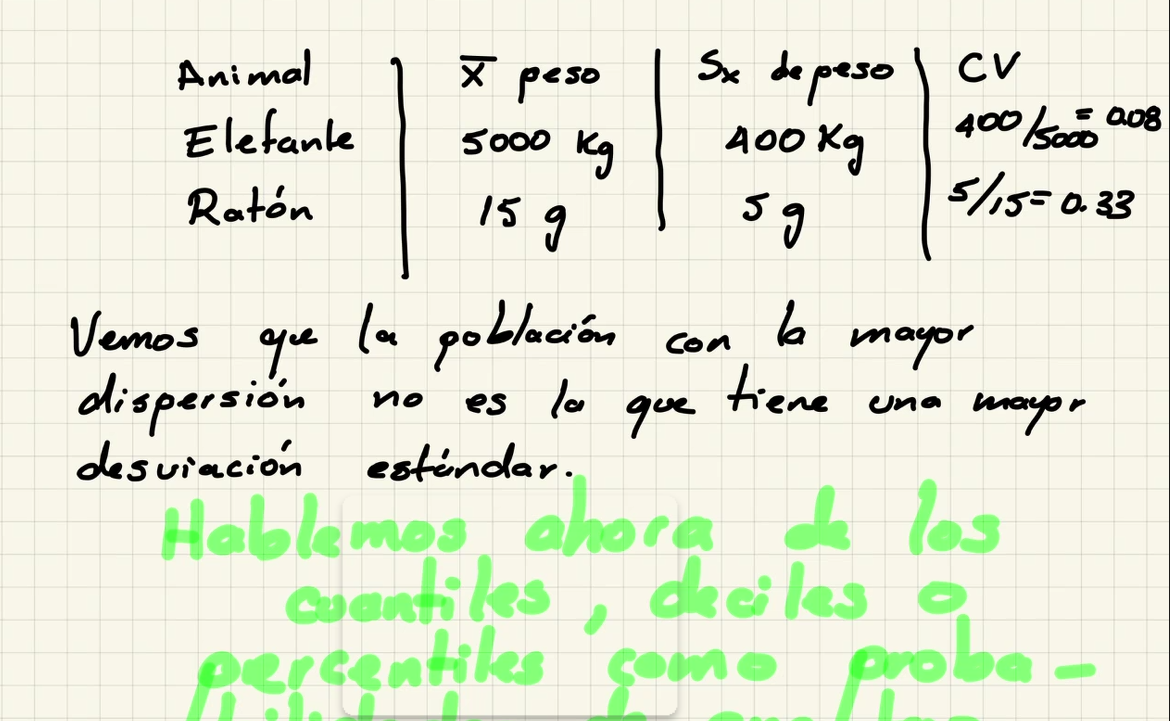 Animal x̄ peso Sx de peso CV
Elefante 5000 Kg 400 Kg 400/5000 = 0.08
Ratón 15 g 5 g 5/15 = 0.33
Vemos que la población con la mayor
dispersión no es la que tiene una mayor
desviación estándar.
Hablemos ahora de los
cuantiles, deciles o
percentiles como proba-